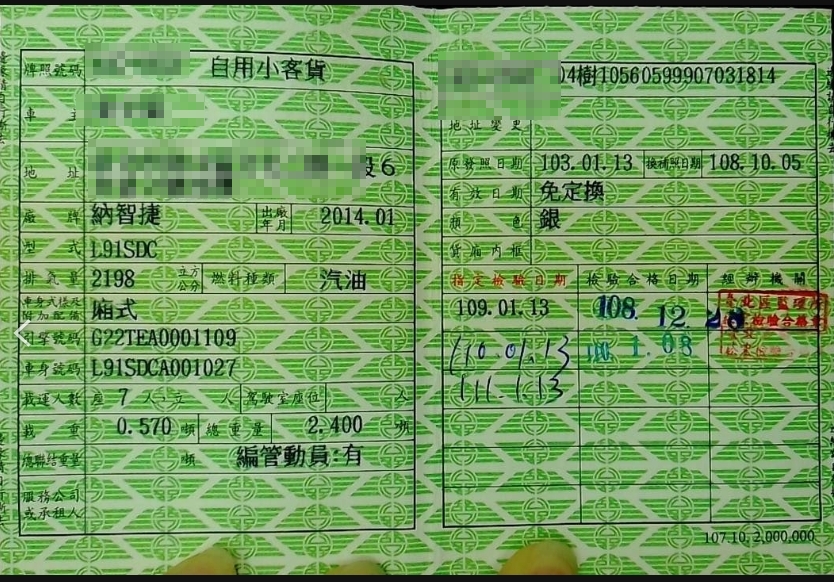 牌照號碼 自用小客貨
車主
地址 段6
廠牌 納智捷 出廠年月 2014.01
型式 L91SDC
排氣量 2198 立方公分 燃料種類 汽油
車身式樣及附加配備 廂式
引擎號碼 G22TEA0001109
車身號碼 L91SDCA001027
載運人數 座 7 人、立 人 駕駛室座位 人
載重 0.570 噸 總重量 2.400 噸
總聯結重量 噸 編管動員:有
服務公司或承租人
04樹10560599907031814
地址變更
原發照日期 103.01.13 換補照日期 108.10.05
有效日期 免定換
顏色 銀
貨廂內框
指定檢驗日期 檢驗合格日期 經辦機關
109.01.13 108. 12. 28 臺北區監理所
檢驗合格章
110.01.13 1.08
111.1.13
107.10. 2,000,000